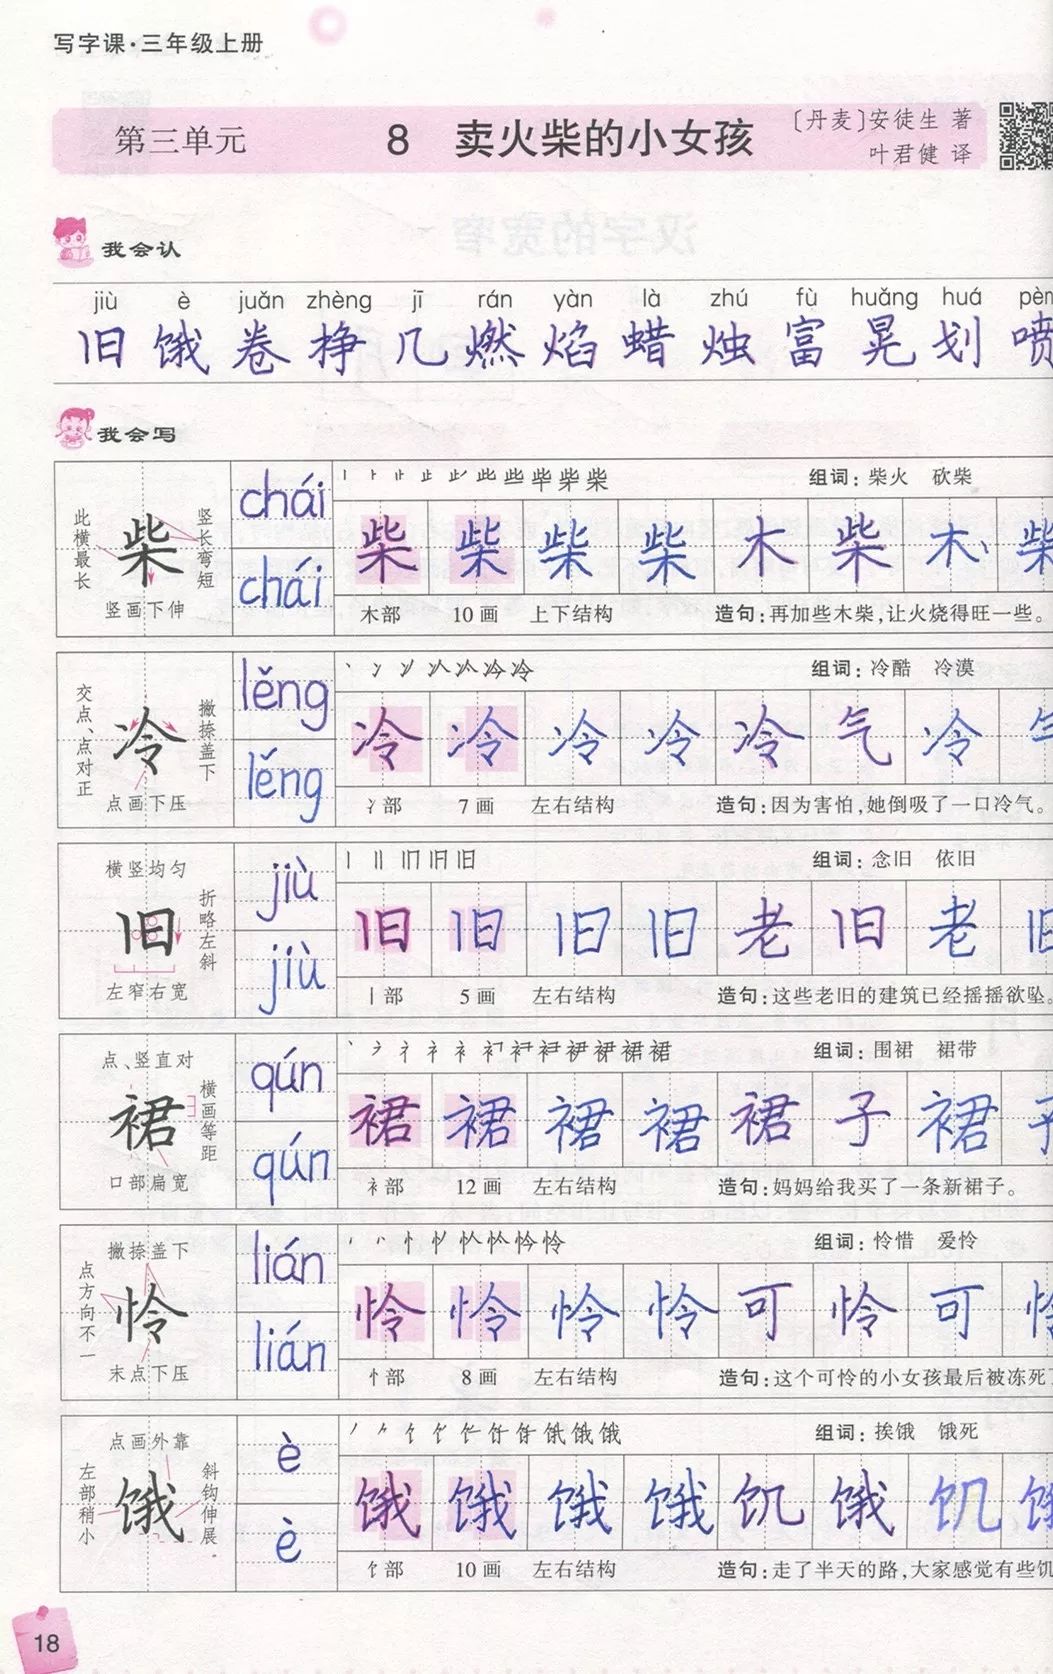 写字课·三年级上册
第三单元 8 卖火柴的小女孩 〔丹麦〕安徒生 著
叶君健 译
我会认
jiù è juǎn zhèng jī rán yàn là zhú fù huǎng huá pèn
旧 饿 卷 挣 几 燃 焰 蜡 烛 富 晃 划 喷
我会写
此横最长 柴 竖长弯短
竖画下伸
chái
chái
组词：柴火 砍柴
柴 柴 柴 柴 木 柴 木 柴
木部 10画 上下结构 造句：再加些木柴，让火烧得旺一些。
交点、点对正 冷 撇捺盖下
点画下压
lěng
lěng
组词：冷酷 冷漠
冷 冷 冷 冷 冷 气 冷
冫部 7画 左右结构 造句：因为害怕，她倒吸了一口冷气。
横竖均匀
旧 折略左斜
左窄右宽
jiù
jiù
组词：念旧 依旧
旧 旧 旧 旧 老 旧 老 旧
丨部 5画 左右结构 造句：这些老旧的建筑已经摇摇欲坠。
点、竖直对
裙 横画等距
口部扁宽
qún
qún
组词：围裙 裙带
裙 裙 裙 裙 裙 子 裙 子
衤部 12画 左右结构 造句：妈妈给我买了一条新裙子。
撇捺盖下
点方向不一 怜
末点下压
lián
lián
组词：怜惜 爱怜
怜 怜 怜 怜 可 怜 可 怜
忄部 8画 左右结构 造句：这个可怜的小女孩最后被冻死
点画外靠
左部稍小 饿 斜钩伸展
è
è
组词：挨饿 饿死
饿 饿 饿 饿 饥 饿 饥 饿
饣部 10画 左右结构 造句：走了半天的路，大家感觉有些饥
18